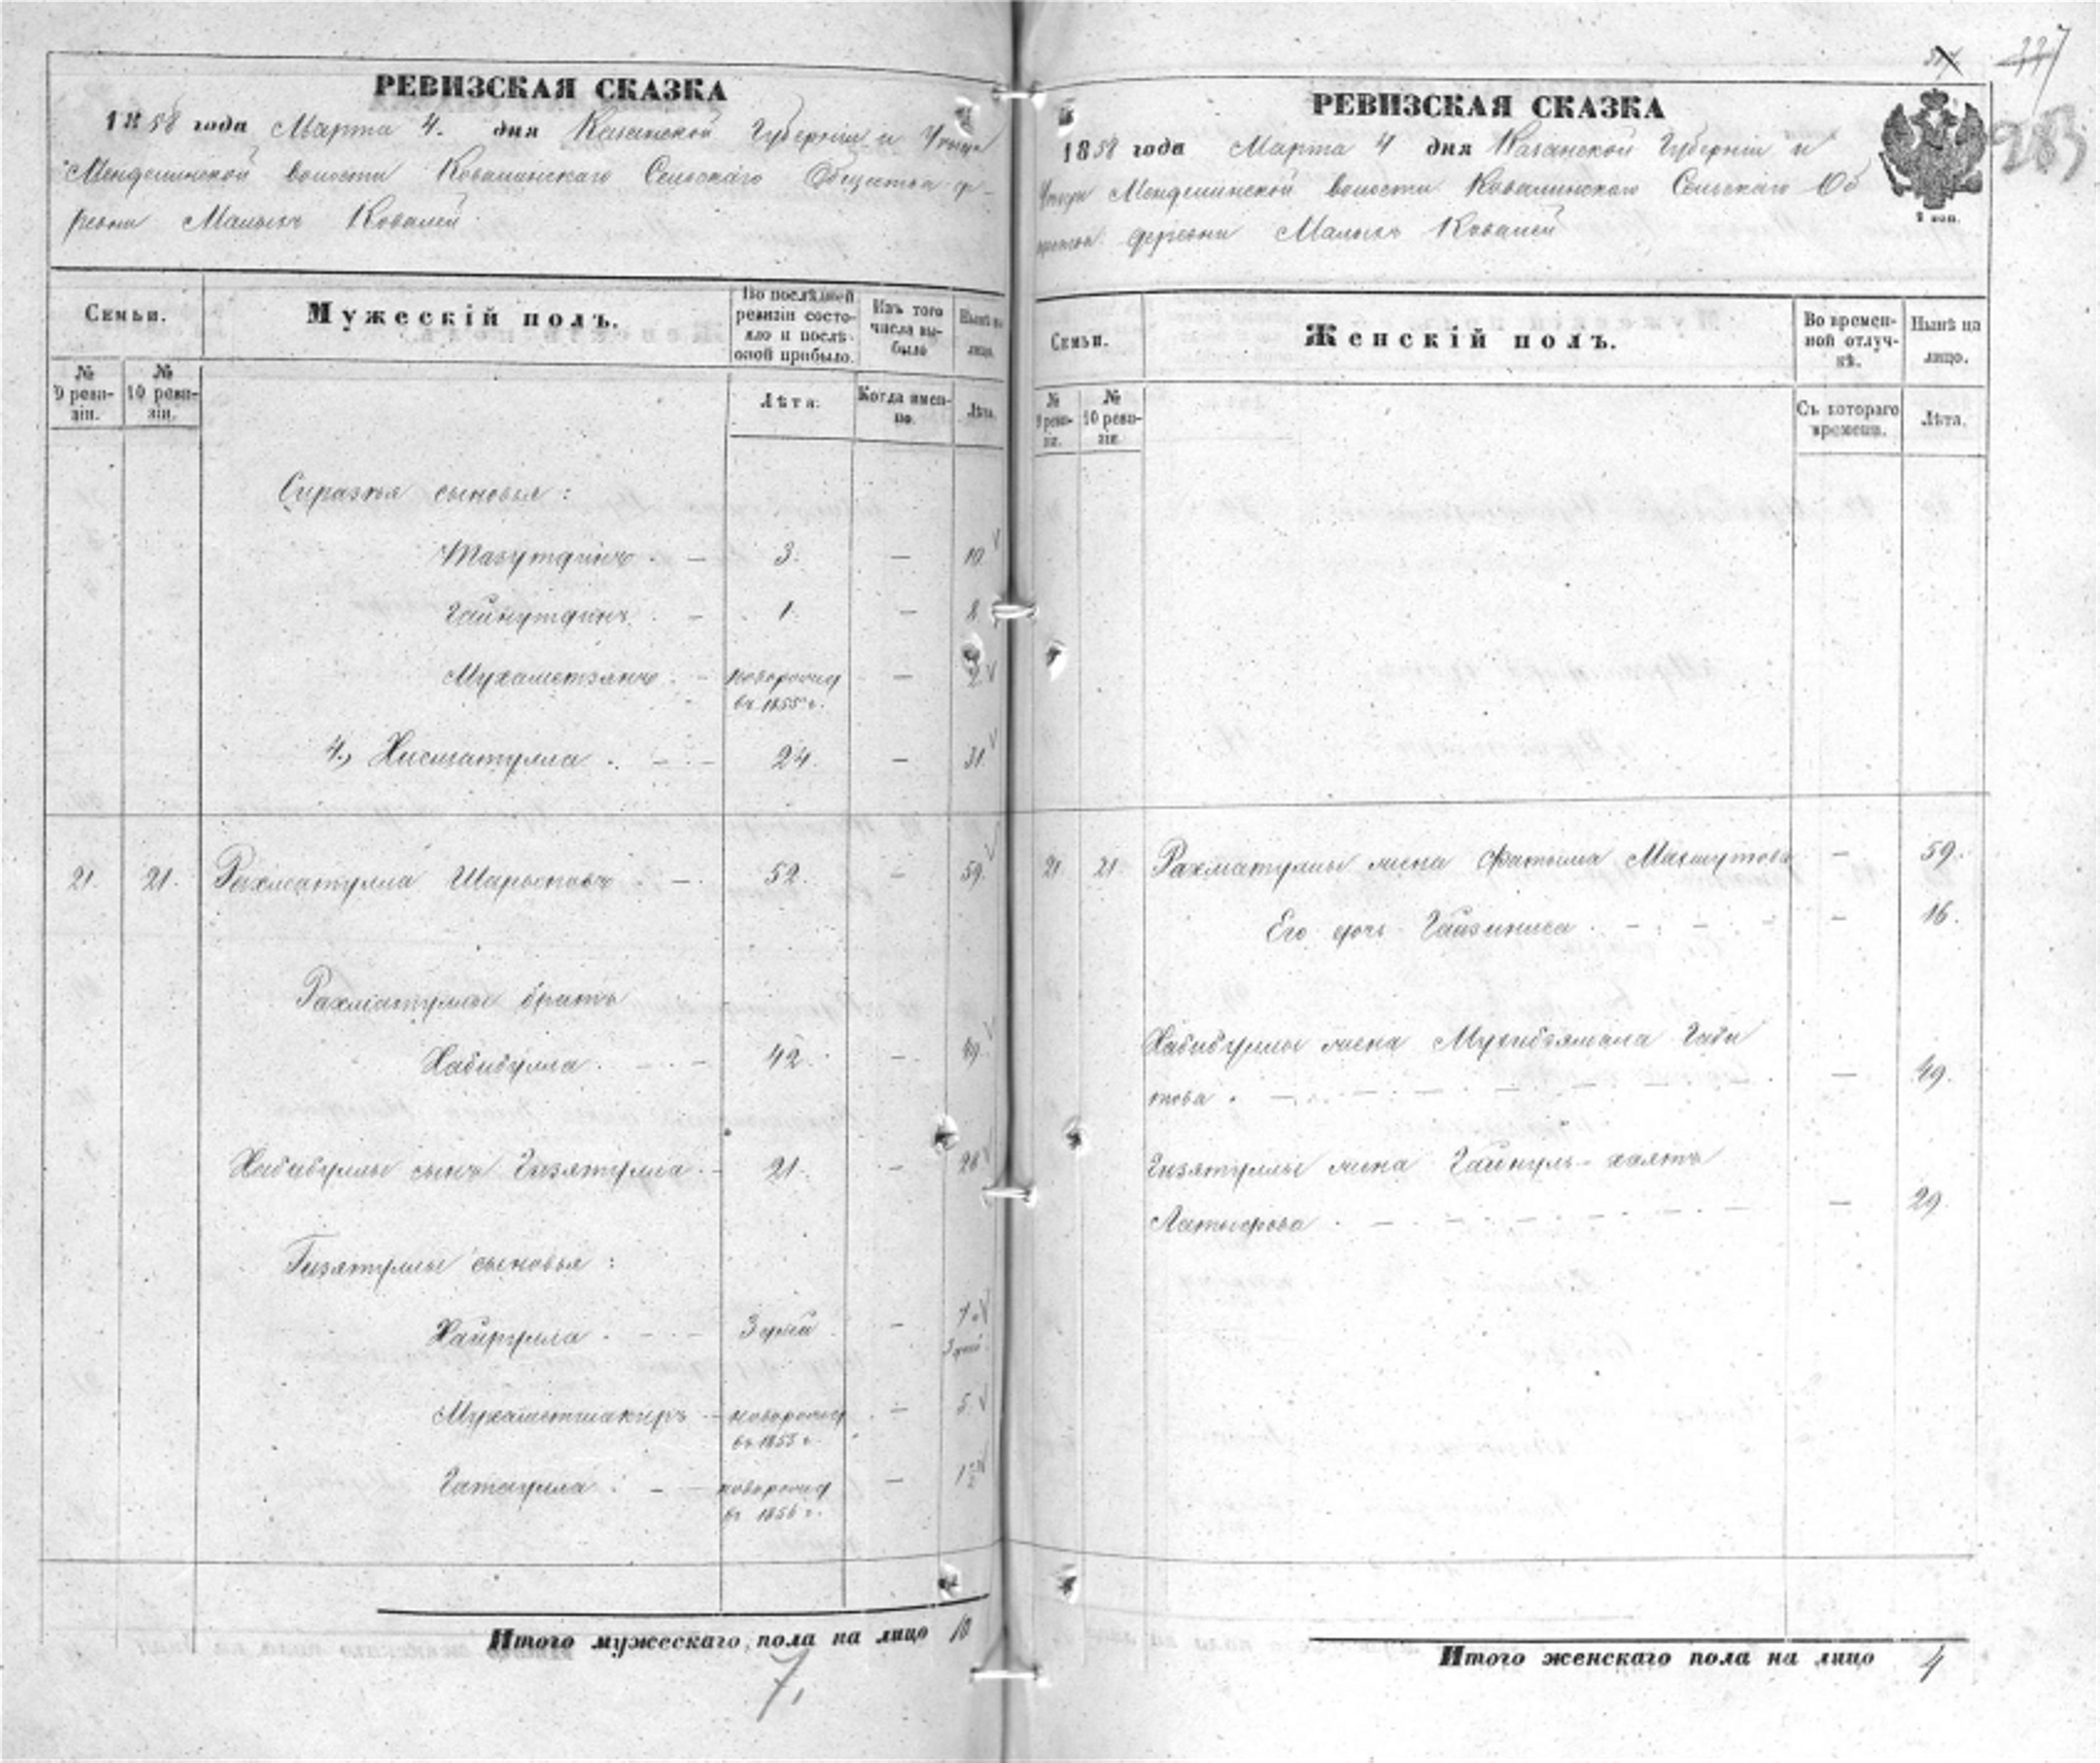 РЕВИЗСКАЯ СКАЗКА
1858 года Марта 4. дня Казанской Губерніи и Уѣзда
Менделинской волости Ковалинскаго Сельскаго Общества де-
ревни Малыхъ Ковалей
Семьи.
Мужескій полъ.
По послѣдней ревизіи состояло и послѣ оной прибыло.
Изъ того числа выбыло
Нынѣ на лицо.
№ 9 ревизіи.
№ 10 ревизіи.
Лѣта.
Когда именно.
Лѣта.
Сиразья сыновья :
Тазутдинъ . — 3. — 10
Гайнутдинъ . — 1. — 8
Мухаметзянъ . — новорожд — 2
въ 1855 г.
4., Нисматулла . — 24. — 31
21. 21. Рахматулла Шарыповъ . — 52. — 59.
Рахматуллы братъ
Хабибулла . — 42. — 49
Хабибуллы сынъ Гизятулла . — 21. — 28
Гизятуллы сыновья :
Хайрулла . — 3 дней — 7.
3 дней
Мухаметшакиръ — новорожд — 5
въ 1853 г.
Гатаулла . — новорожд — 1 1/2
въ 1856 г.
Итого мужескаго пола на лицо 10
7,
227
283
РЕВИЗСКАЯ СКАЗКА
1858 года Марта 4 дня Казанской Губерніи и
Уѣзда Менделинской волости Ковалинскаго Сельскаго Об
щества деревни Малыхъ Ковалей
Семьи.
Женскій полъ.
Во временной отлучкѣ.
Нынѣ на лицо.
№ 9 ревизіи.
№ 10 ревизіи.
Съ котораго времени.
Лѣта.
21 21 Рахматуллы жена Фатыма Махмутова — 59.
Его дочь Гайзиниса . — — 16.
Хабибуллы жена Мухибзямала Габи
това . — — 49.
Гизятуллы жена Гайнуль-хаятъ
Латыфова . — — 29.
Итого женскаго пола на лицо 4